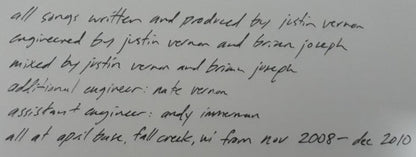 all songs written and produced by justin vernon
engineered by justin vernon and brian joseph
mixed by justin vernon and brian joseph
additional engineer: nate vernon
assistant engineer: andy immerman
all at april base, fall creek, wi from nov 2008 - dec 2010